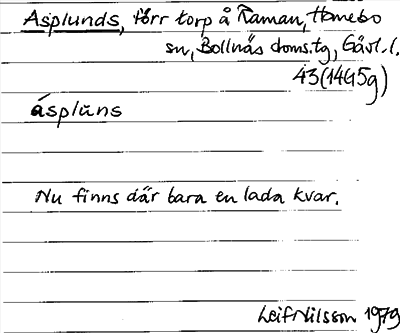 Asplunds, förr torp å Raman, Hanebo
sn, Bollnäs doms.tg, Gävl.l.
43(14G5g)
ásplūns
Nu finns där bara en lada kvar.
Leif Nilsson 1979